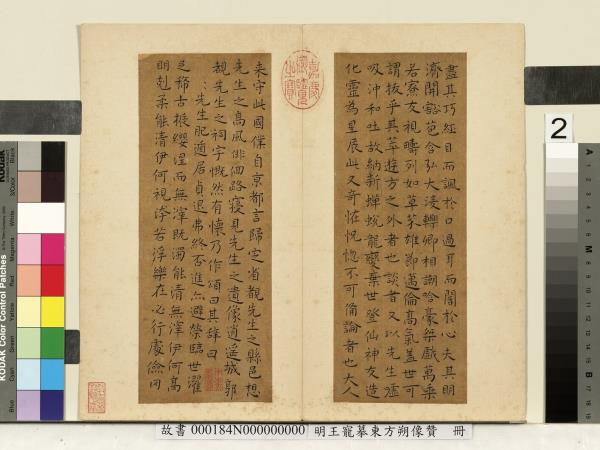 盡其巧經目而諷於口過耳而闇於心夫其明
濟開豁苞含弘大淩轢卿相謿哈豪桀戲萬乘
若寮友視疇列如草芥雄節邁倫高氣蓋世可
謂拔乎其萃遊方之外者也談者又以先生噓
吸沖和吐故納新蟬蛻龍變棄世登仙神友造
化靈為星辰此又奇怪怳惚不可備論者也大人
來守此國僕自京都言歸定省觀先生之縣邑想
先生之高風徘徊路寢見先生之遺像逍遙城郭
觀先生之祠宇慨然有懷乃作頌曰其辭曰
先生肥遁居貞退弗終否進亦避榮臨世濯
足稀古振纓涅而無滓既濁能清無滓伊何高
明剋柔能清伊何視汙若浮樂在必行處儉罔
嘉慶御覽之寶
2
KODAK Color Control Patches
Blue
Cyan
Green
Yellow
Red
Magenta
White
3/Color
Black
A
M
B
故書 000184N000000000 明王寵摹東方朔像贊 冊